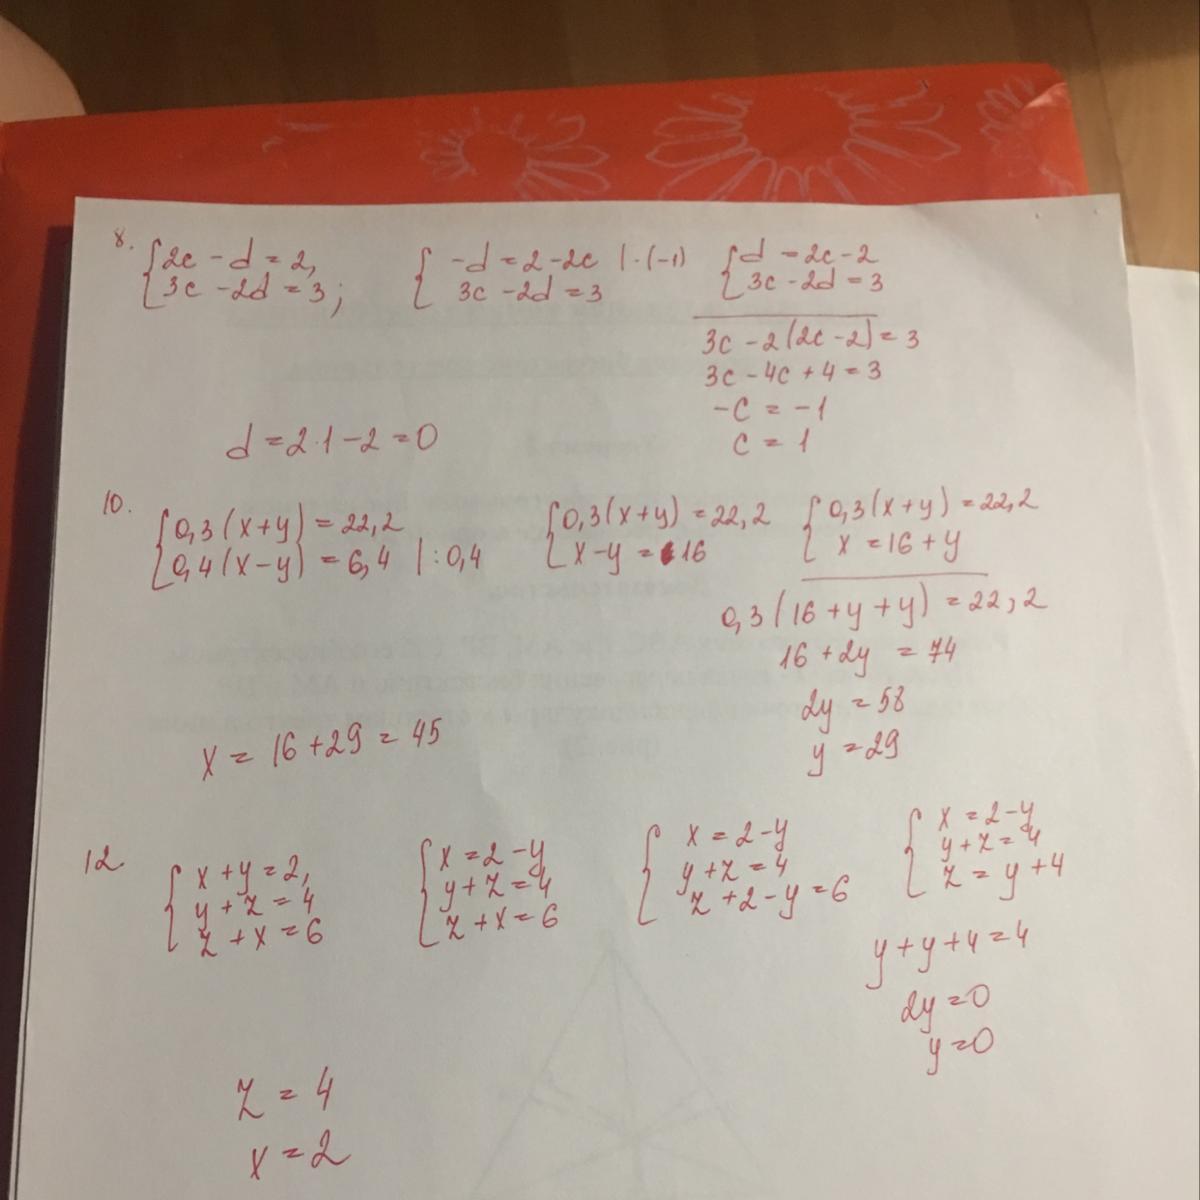 8.
{2c - d = 2,
3c - 2d = 3;
{-d = 2 - 2c |·(-1)
3c - 2d = 3
{d = 2c - 2
3c - 2d = 3
3c - 2(2c - 2) = 3
3c - 4c + 4 = 3
-c = -1
c = 1
d = 2·1 - 2 = 0
10.
{0,3(x+y) = 22,2
0,4(x-y) = 6,4 |:0,4
{0,3(x+y) = 22,2
x-y = 16
{0,3(x+y) = 22,2
x = 16 + y
0,3(16 + y + y) = 22,2
16 + 2y = 74
2y = 58
y = 29
x = 16 + 29 = 45
12
{x + y = 2,
y + z = 4
z + x = 6
{x = 2 - y
y + z = 4
z + x = 6
{x = 2 - y
y + z = 4
z + 2 - y = 6
{x = 2 - y
y + z = 4
z = y + 4
y + y + 4 = 4
2y = 0
y = 0
z = 4
x = 2